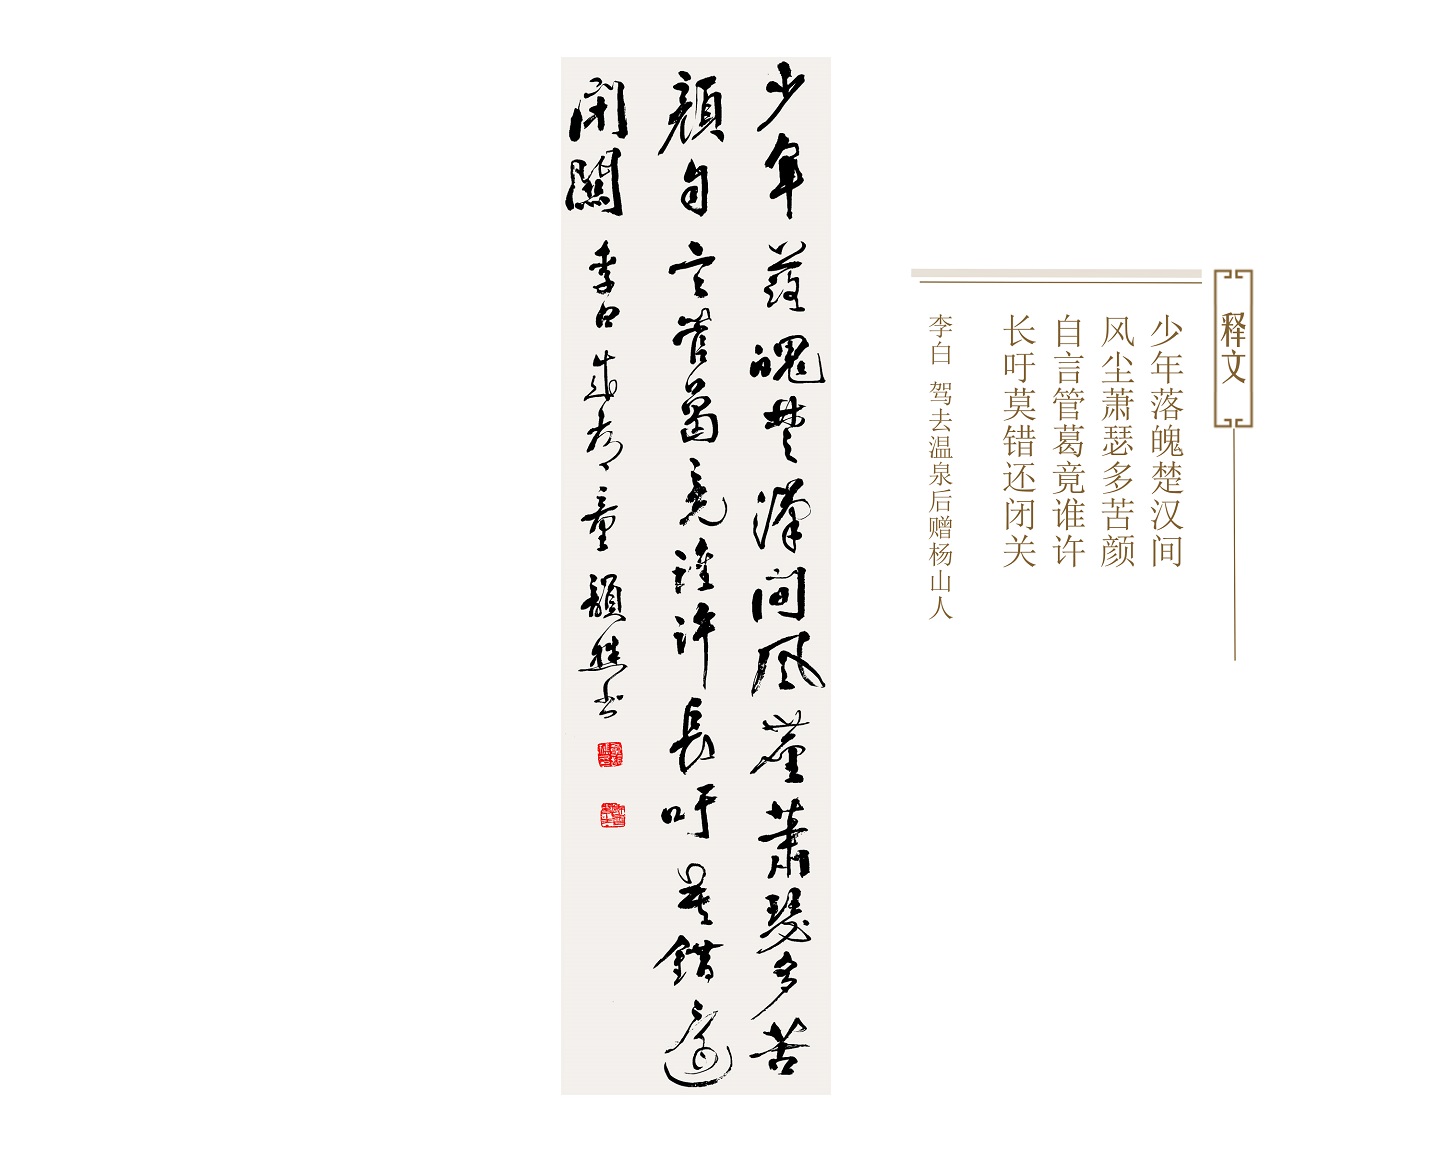 少年落魄楚漢间风塵萧瑟多苦
颜自言管葛竟誰许長吁莫错還
闭關 李白 成都 童韻樵书
释文
少年落魄楚汉间
风尘萧瑟多苦颜
自言管葛竟谁许
长吁莫错还闭关
李白 驾去温泉后赠杨山人